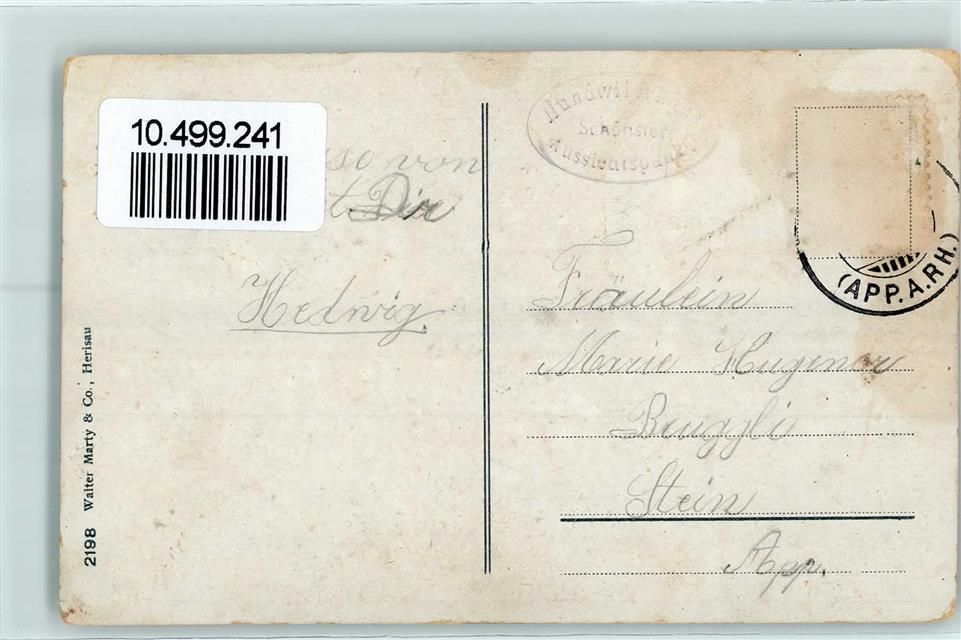 10.499.241
von
Dir
Hedwig.
2198 Walter Marty & Co., Herisau
Schönster
(APP. A. RH.)
Fräulein
Marie Hugener
Bruggli
Stein
App.